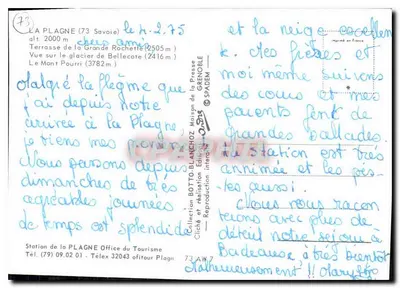 75
LA PLAGNE (73 Savoie) le 4.2.75
alt. 2000 m
Chers amis
Terrasse de la Grande Rochette (2505 m)
Vue sur le glacier de Bellecote (2416 m)
Le Mont Pourri (3782 m)
Malgré la flegme que
j'ai depuis notre
arrivée à la Plagne,
je viens mes
Nous passons depuis
dimanches de très
agréables journées
de temps est splendide
Station de la PLAGNE Office du Tourisme
Tél. (79) 09.02 01 - Télex 32043 ofitour Plagn
73 AW 7
Collection BOTTO-BLANCHOZ Maison de la Presse
Cliché et réalisation Edition GRENOBLE
Reproduction interdite © SPADEM
et la neige excellen
te. Mes frères et
moi même suivons
des cours et mes
parents font de
grandes ballades
La station est très
annimée et les pis-
tes aussi.
Nous vous racon
terons avec plus de
détail notre séjour à
Badeause à très bientôt
Malheureusement !!